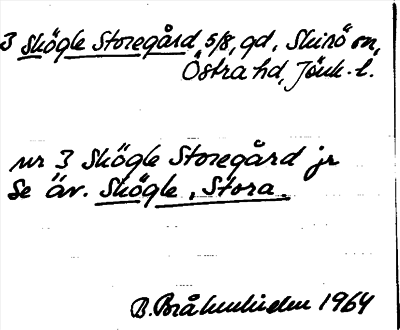 3 Skögle Storegård, 5/8, gd, Skirö sn,
Östra hd, Jönk. l.
nr 3 Skögle Storegård jr
Se äv. Skögle, Stora.
B. Bråhnlinden 1964